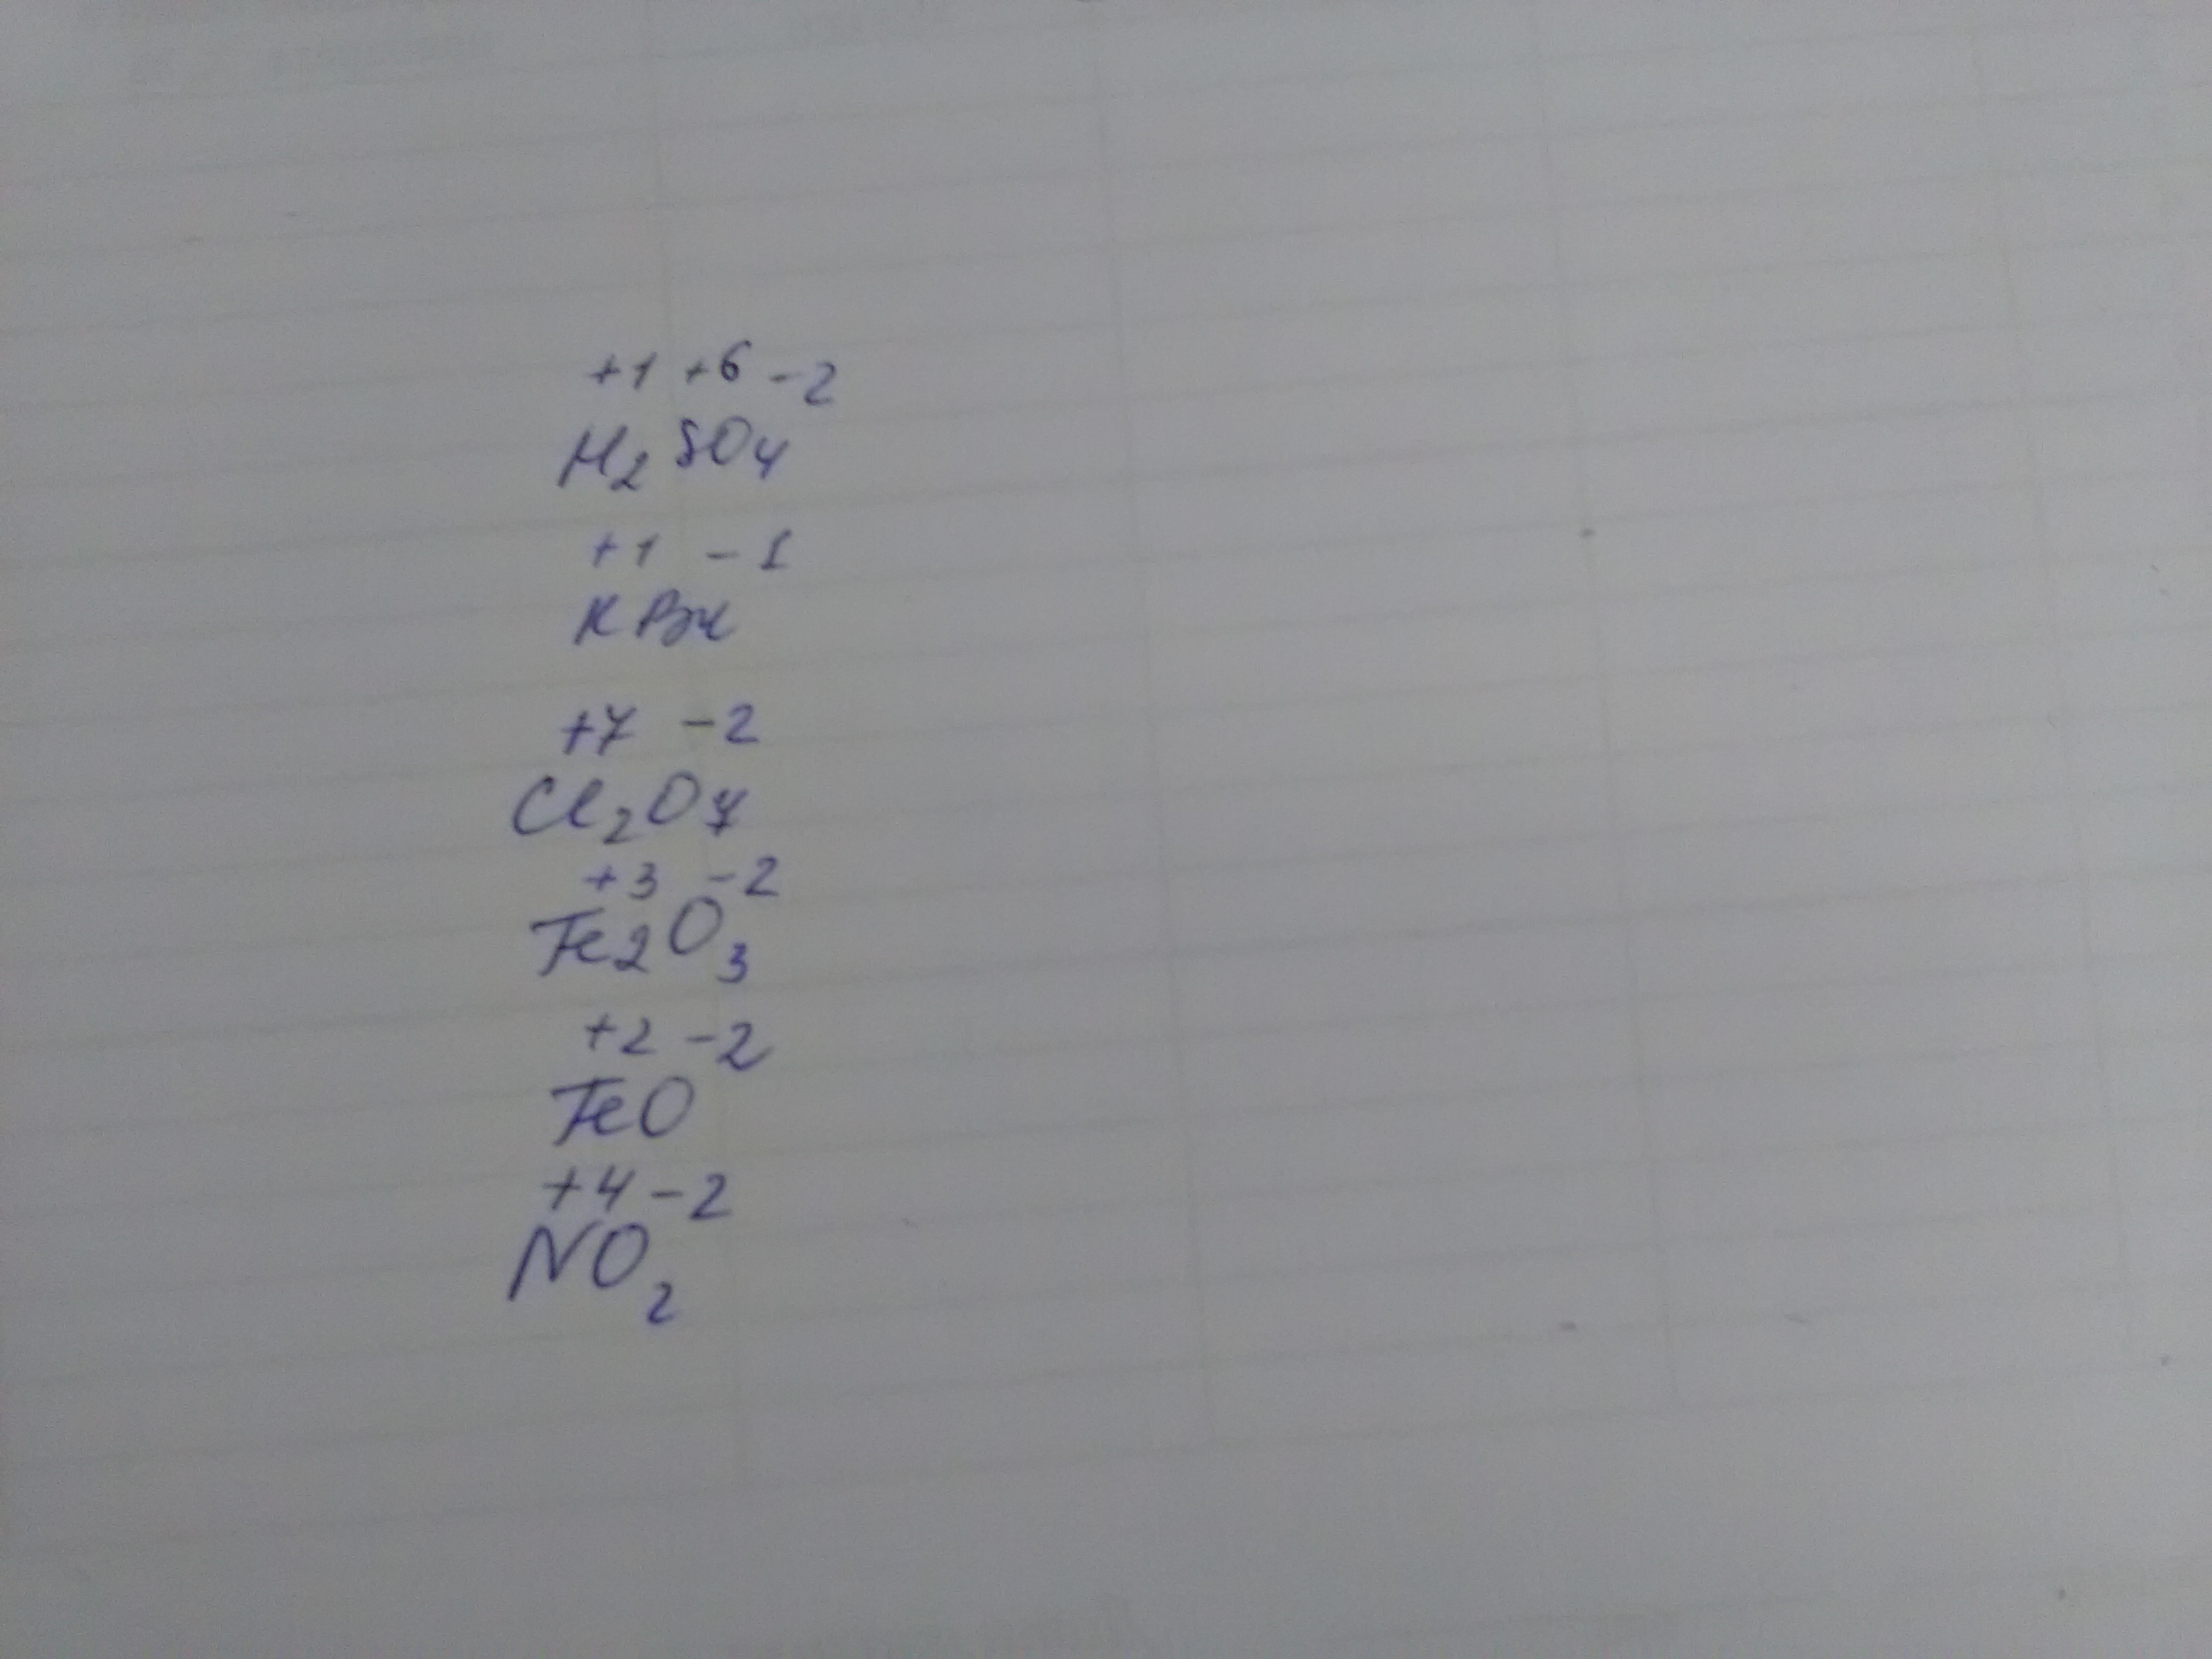 +1 +6 -2
H2 SO4
+1 -1
KBr
+7 -2
Cl2O7
+3 -2
Fe2O3
+2 -2
FeO
+4 -2
NO2